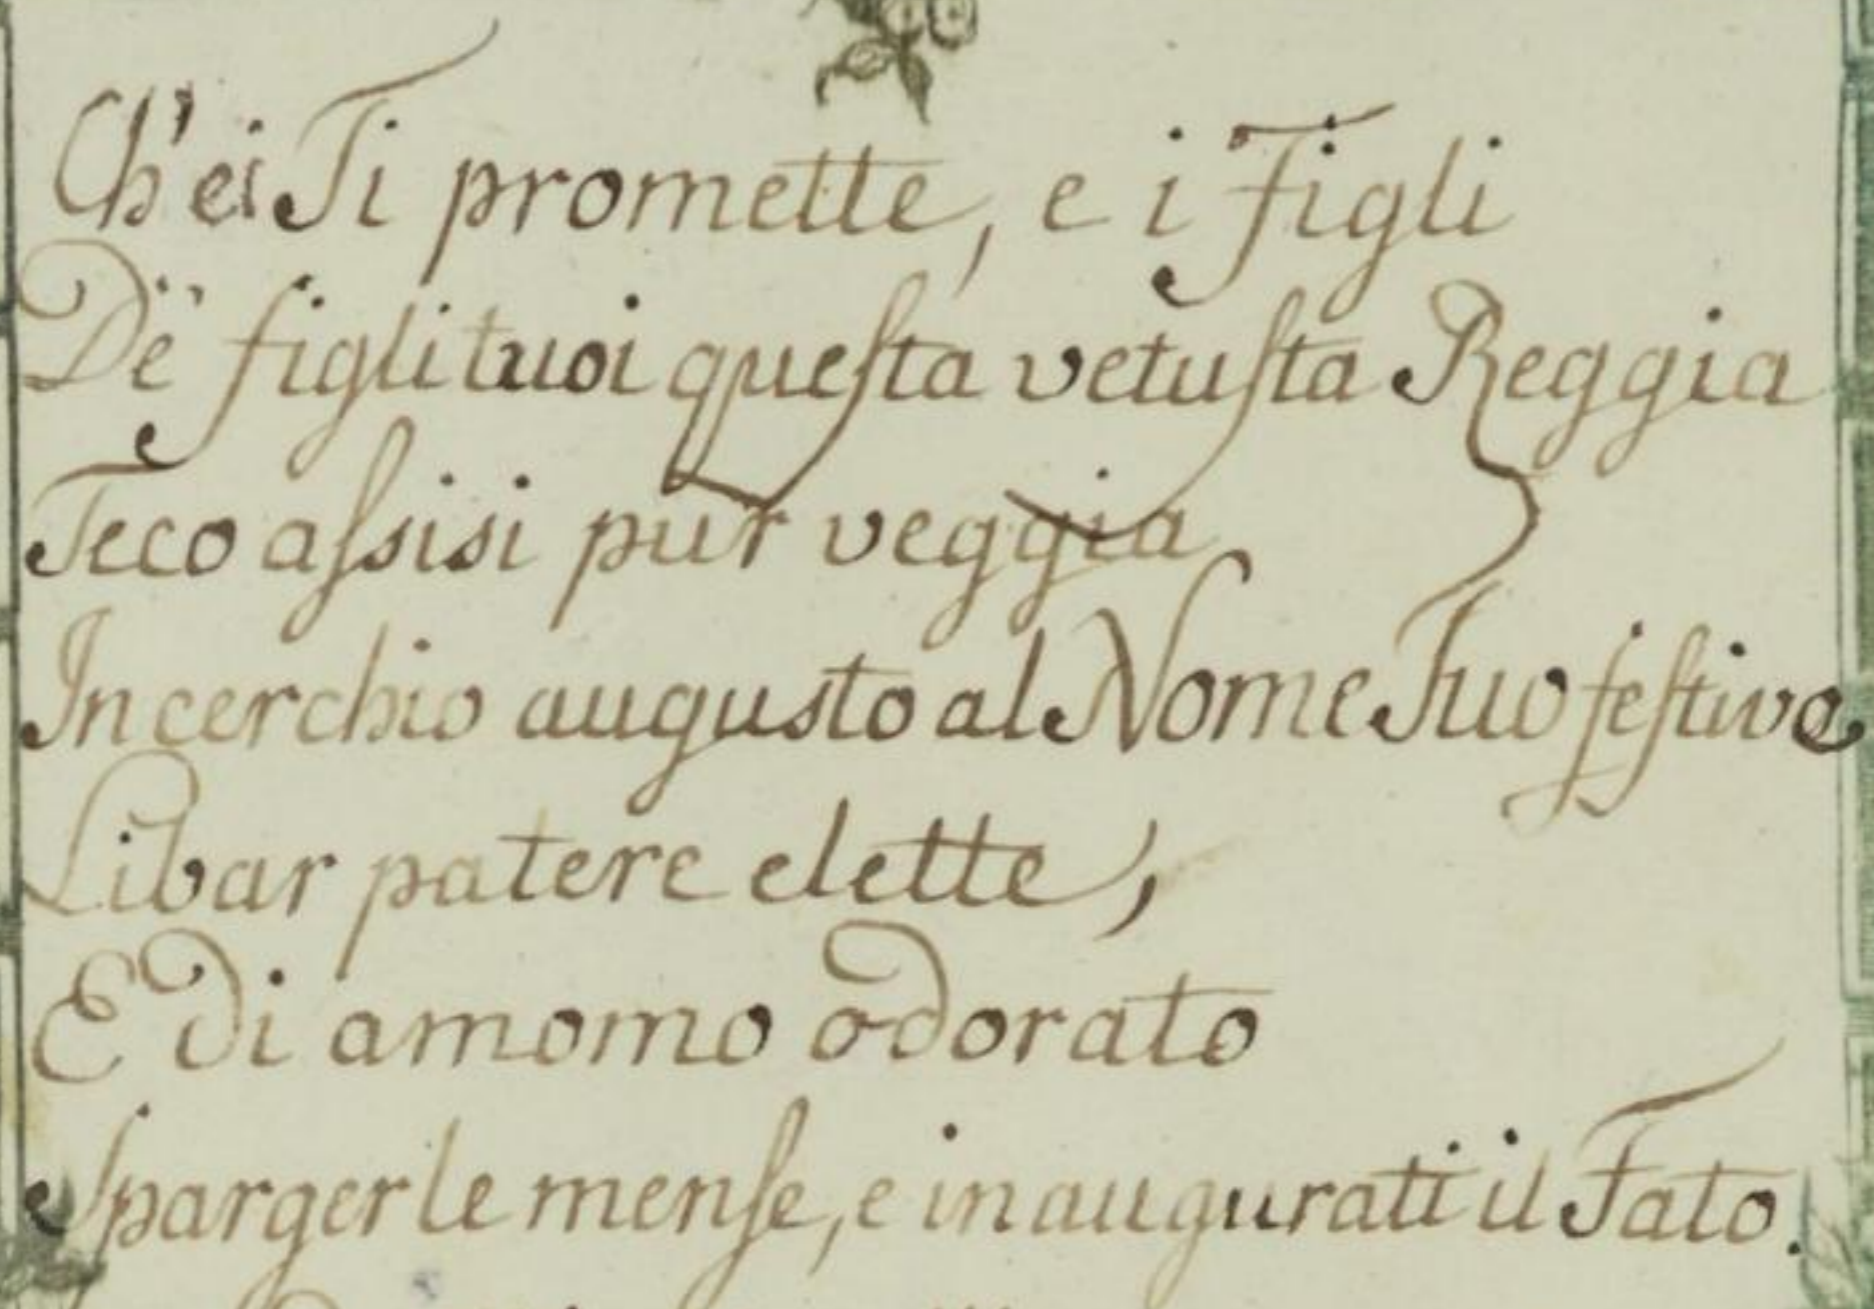 Ch'ei Ti promette, e i Figli
De' figli tuoi questa vetusta Reggia
Teco assisi pur veggia
In cerchio augusto al Nome Tuo festivo
Libar patere elette,
E di amomo odorato
Sparger le mense, e inaugurati il Fato.